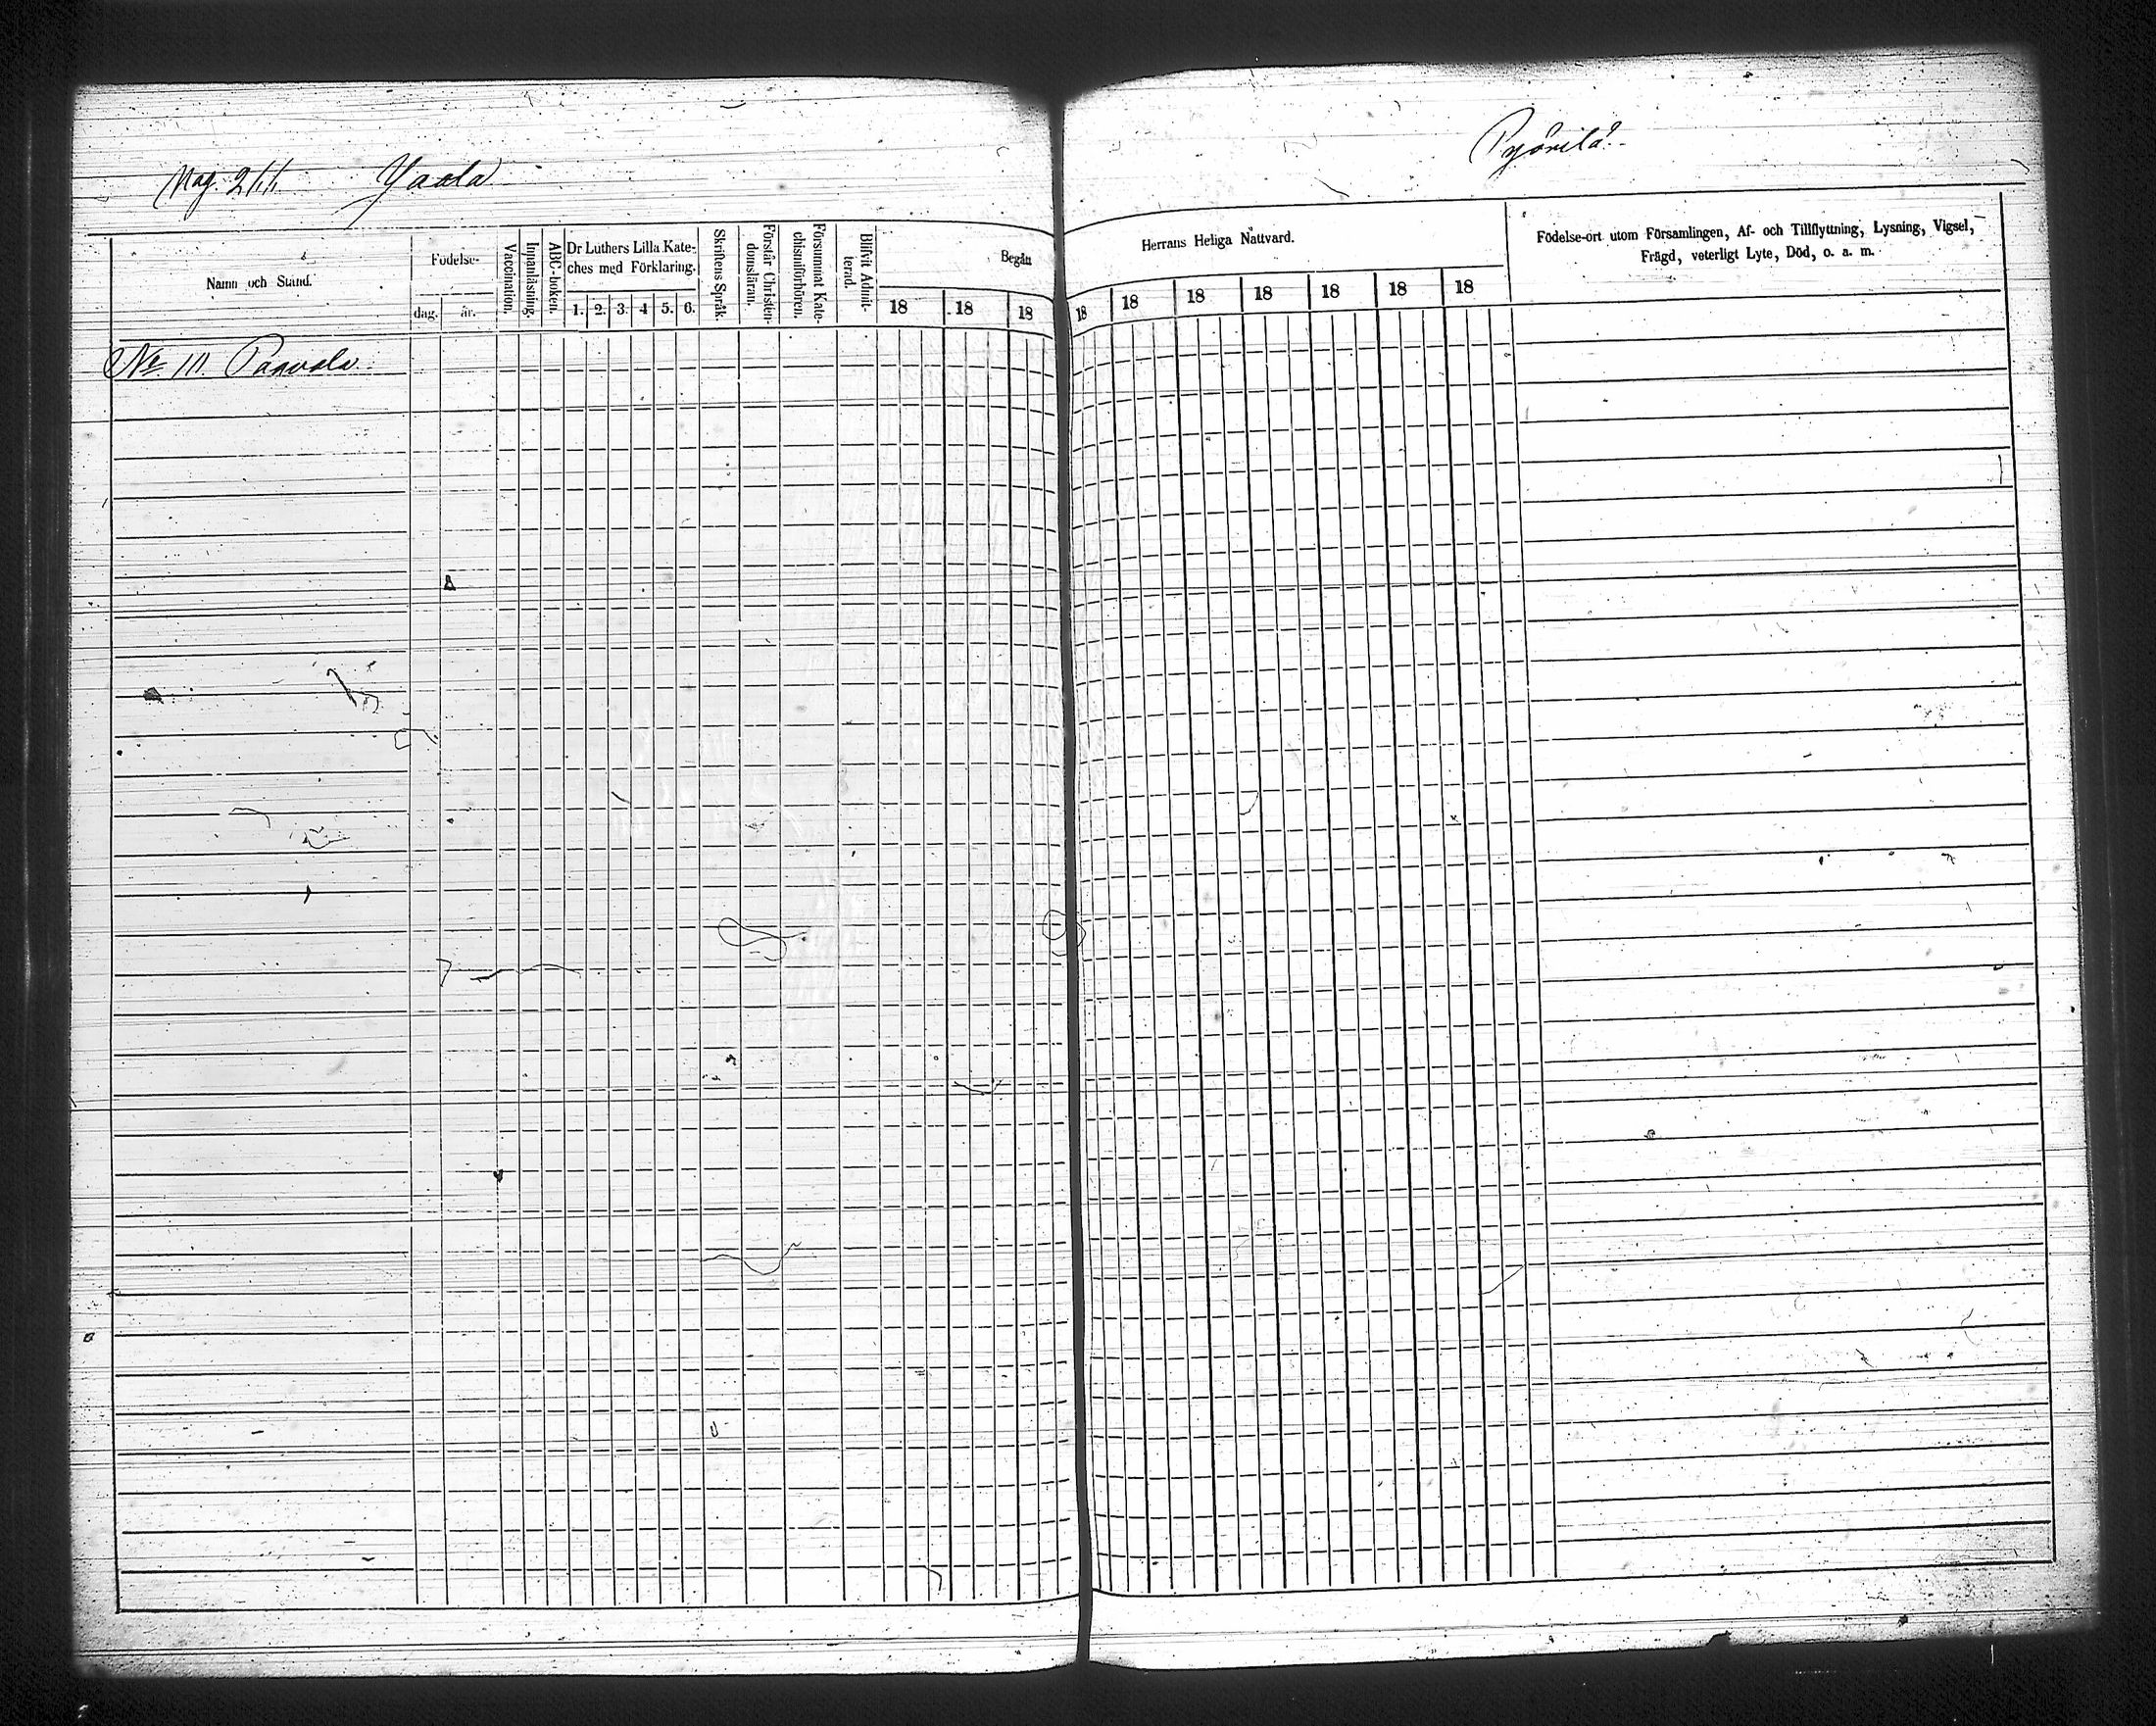 Pag. 211. Yaala
Pyörilä
Namn och Stånd.
Födelse-
dag. år.
Vaccination.
Innanläsning.
ABC-boken.
Dr Luthers Lilla Kate-
ches med Förklaring.
1. 2. 3. 4 5. 6.
Skriftens Språk.
Förstår Christen-
domsläran.
Försummat Kate-
chismiförhören.
Blifvit Admit-
terad.
Begått
18 18 18
Herrans Heliga Nattvard.
18 18 18 18 18 18 18
Födelse-ort utom Församlingen, Af- och Tillflyttning, Lysning, Vigsel,
Frägd, veterligt Lyte, Död, o. a. m.
No 10. Paavola.